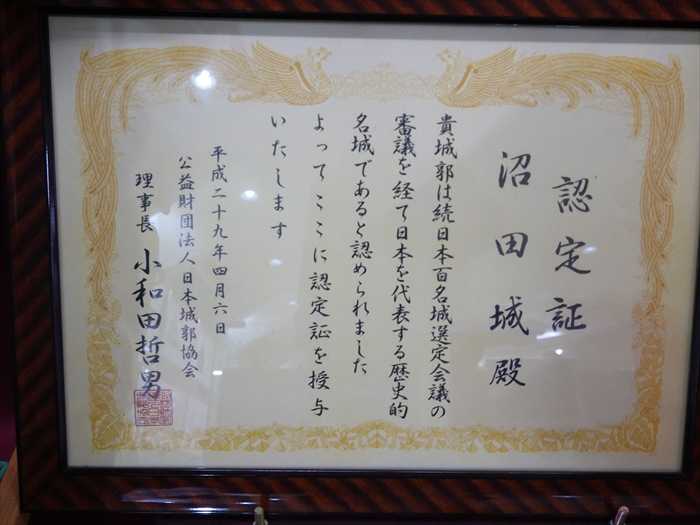 認定証
沼田城殿
貴城郭は続日本百名城選定会議の
審議を経て日本を代表する歴史的
名城であると認められました
よってここに認定証を授与
いたします
平成二十九年四月六日
公益財団法人日本城郭協会
理事長 小和田哲男